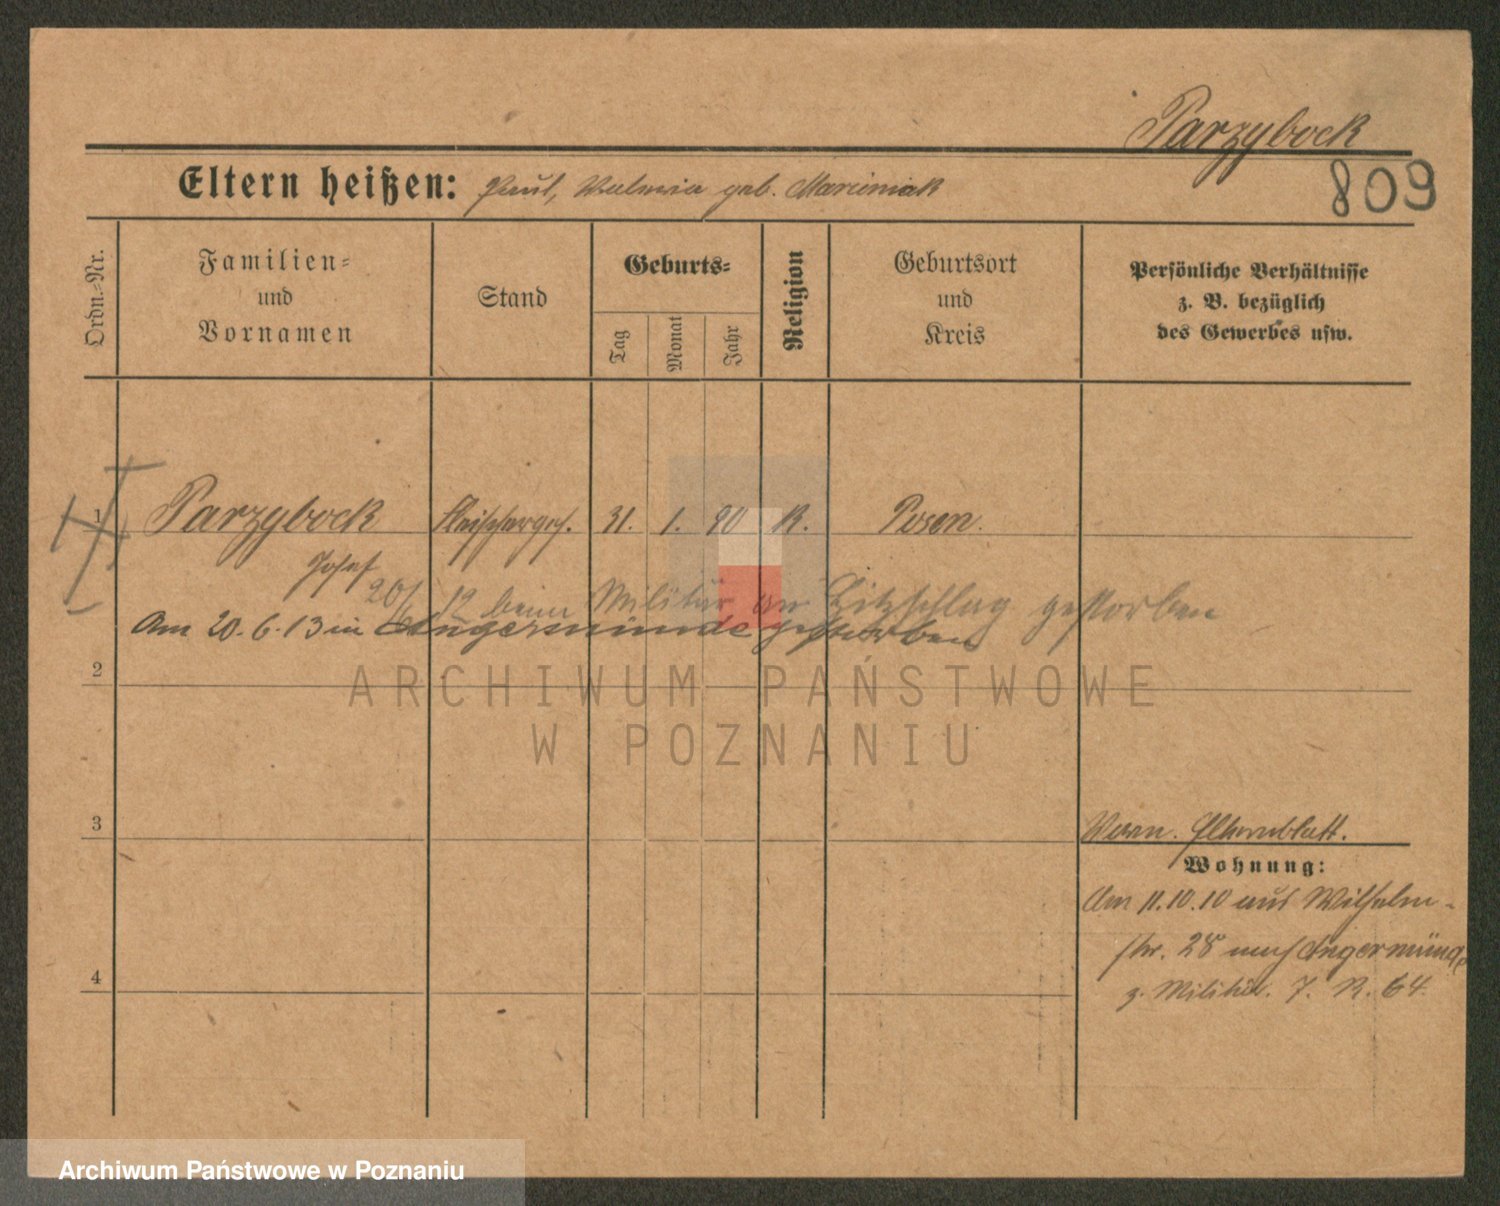 Parzybock
809
Eltern heißen: Paul, Valeria geb. Marciniak
Ordn.-Nr.
Familien-
und
Vornamen
Stand
Geburts-
Tag
Monat
Jahr
Religion
Geburtsort
und
Kreis
Persönliche Verhältnisse
z. B. bezüglich
des Gewerbes usw.
1 Parzybock Fleischerges. 31. 1. 90 K. Posen.
Josef
20/6 12 beim Militär an Hitzschlag gestorben
Am 20.6.13 in Angermünde gestorben
2
ARCHIWUM PAŃSTWOWE
W POZNANIU
3
Elternblatt.
Wohnung:
Am 11.10.10 aus Wilhelm-
str. 28 nach Angermünde
z. Militär. 7. R. 64.
4
Archiwum Państwowe w Poznaniu